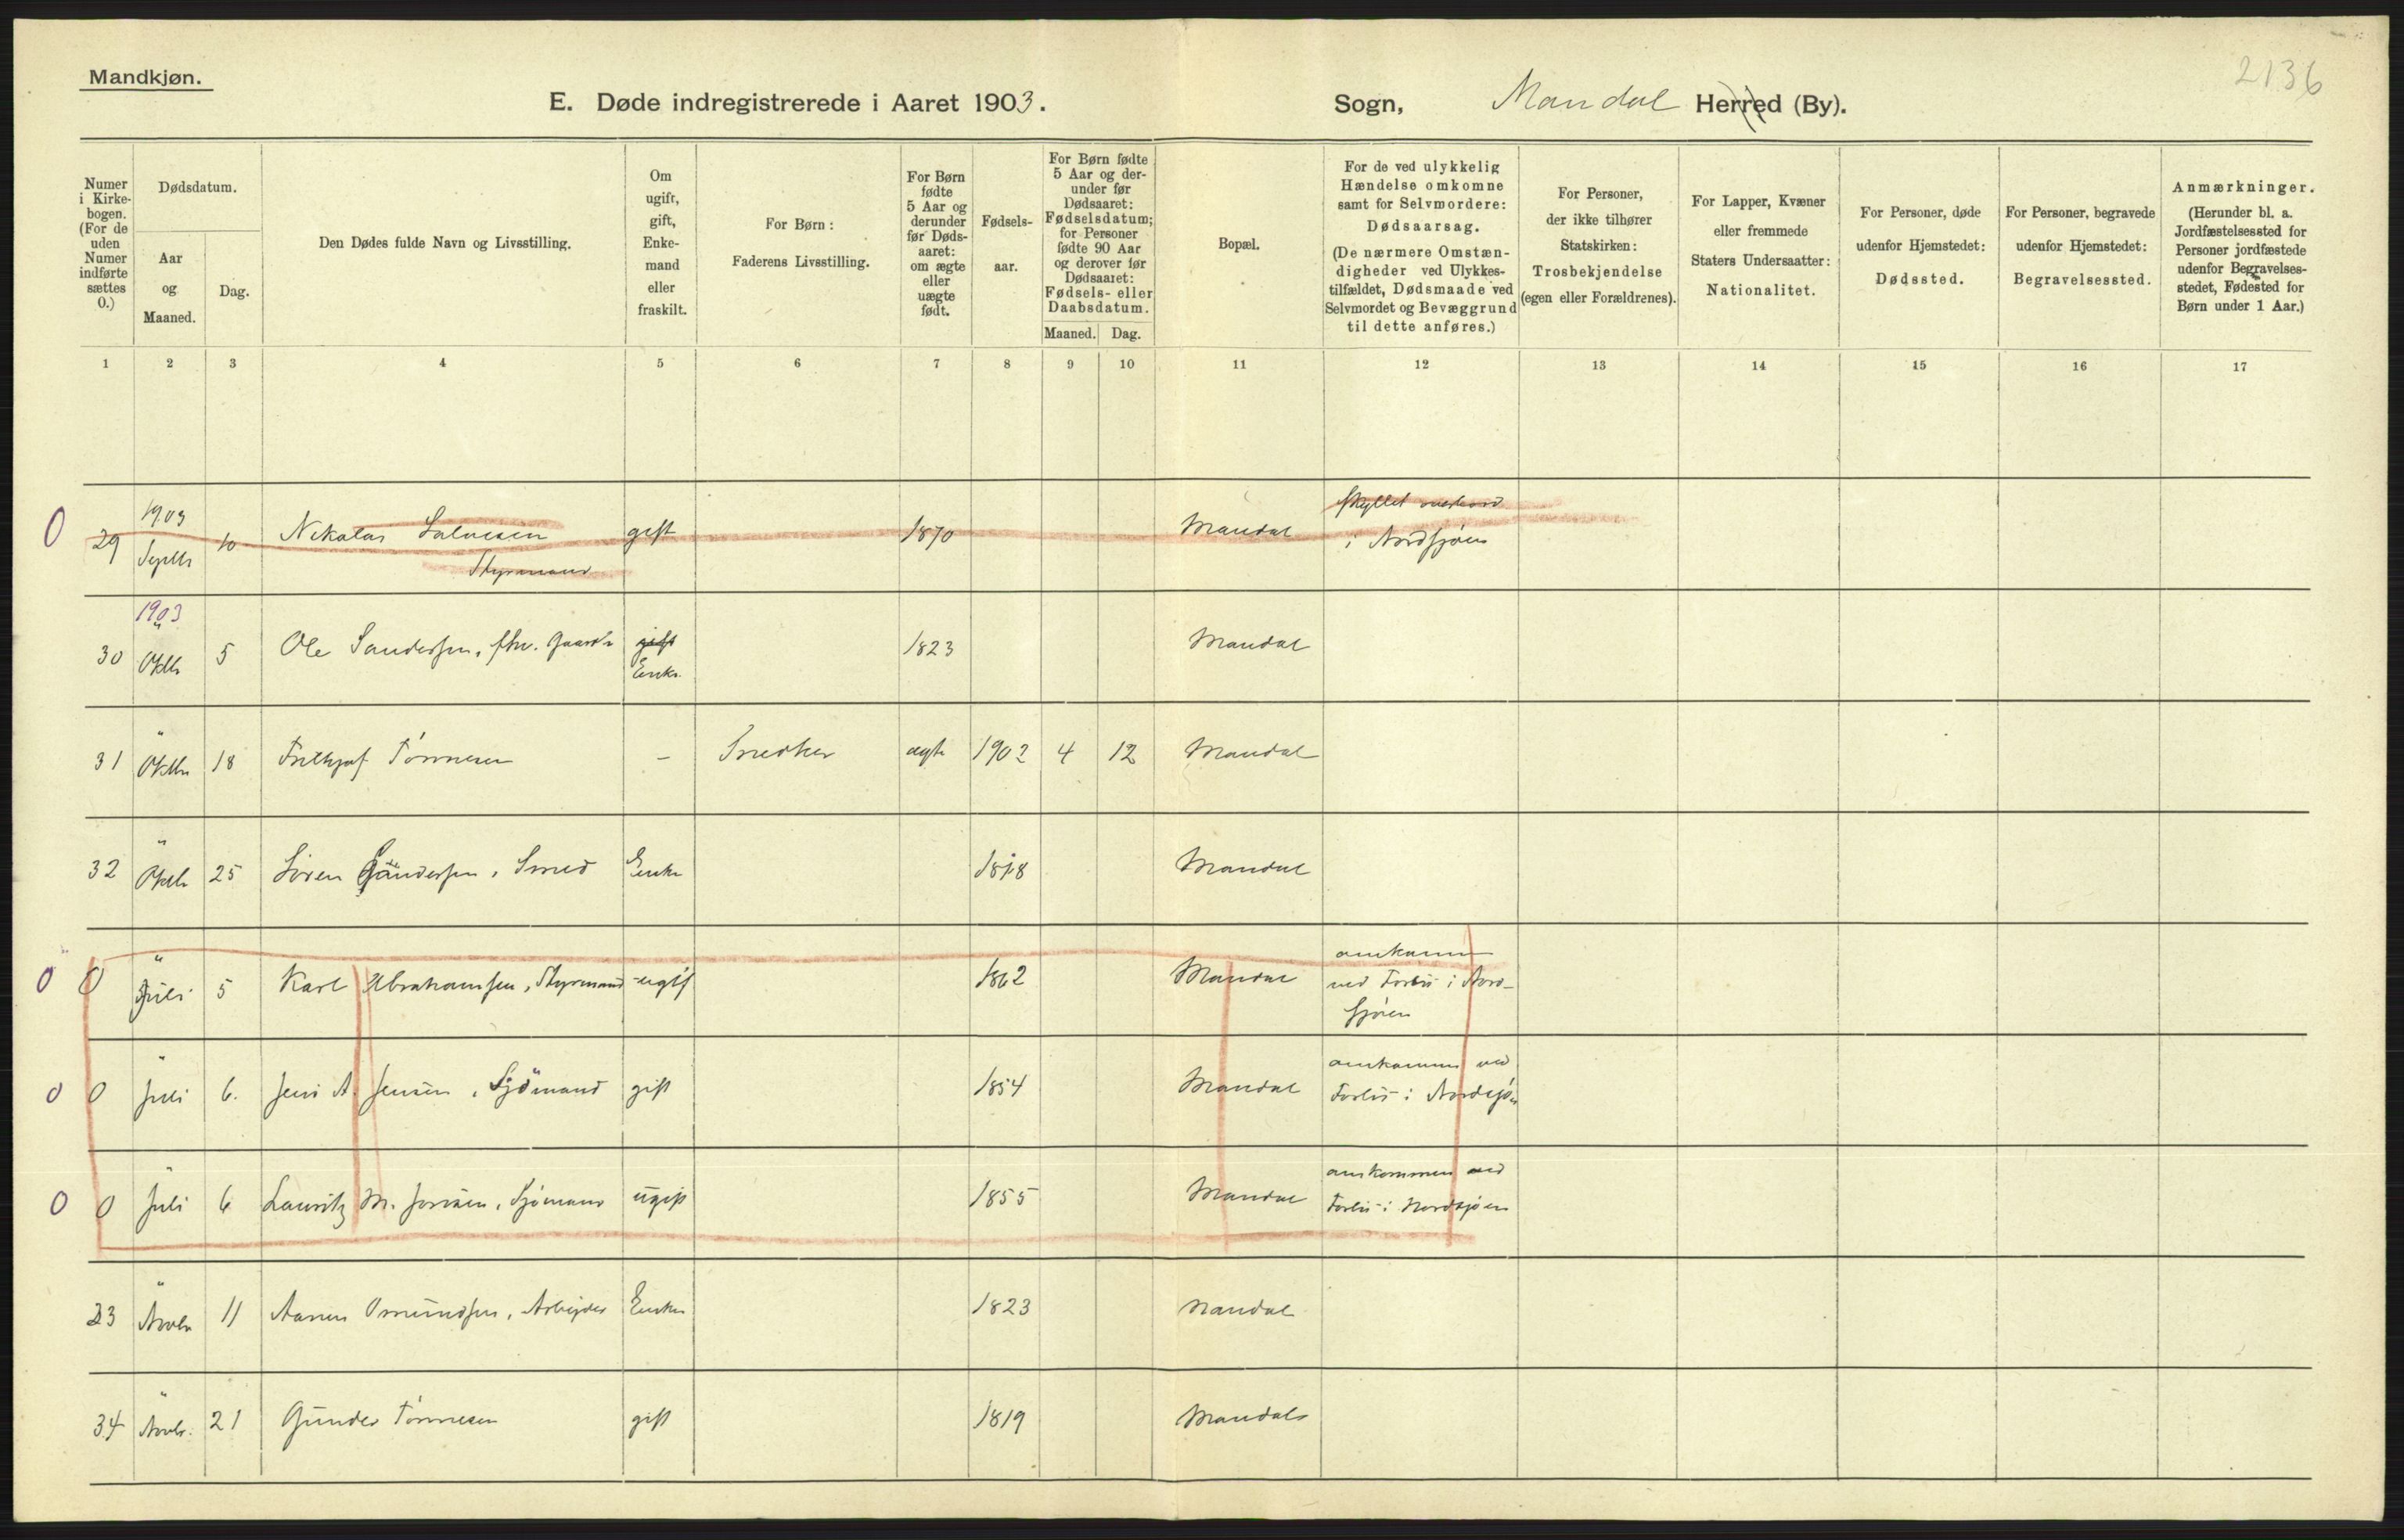 Mandkjøn.
2136
E. Døde indregistrerede i Aaret 1903. Sogn, Mandal Herred (By).
Numer i Kirkebogen. (For de uden Numer indførte sættes 0.)
Dødsdatum.
Aar og Maaned.
Dag.
Den Dødes fulde Navn og Livsstilling.
Om ugift, gift, Enkemand eller fraskilt.
For Børn: Faderens Livsstilling.
For Børn fødte 5 Aar og derunder før Dødsaaret: om ægte eller uægte født.
Fødselsaar.
For Børn fødte 5 Aar og derunder før Dødsaaret: Fødselsdatum; for Personer fødte 90 Aar og derover før Dødsaaret: Fødsels- eller Daabsdatum.
Maaned. Dag.
Bopæl.
For de ved ulykkelig Hændelse omkomne samt for Selvmordere: Dødsaarsag. (De nærmere Omstændigheder ved Ulykkestilfældet, Dødsmaade ved Selvmordet og Bevæggrund til dette anføres.)
For Personer, der ikke tilhører Statskirken: Trosbekjendelse (egen eller Forældrenes).
For Lapper, Kvæner eller fremmede Staters Undersaatter: Nationalitet.
For Personer, døde udenfor Hjemstedet: Dødssted.
For Personer, begravede udenfor Hjemstedet: Begravelsessted.
Anmærkninger. (Herunder bl. a. Jordfæstelsessted for Personer jordfæstede udenfor Begravelsesstedet, Fødested for Børn under 1 Aar.)
1 2 3 4 5 6 7 8 9 10 11 12 13 14 15 16 17
0 29 1903 Septbr 10 Nikolai Salvesen Styrmand gift 1870 Mandal Skyllet overbord i Nordsjøen
30 1903 " Oktbr 5 Ole Sandersen, fhv. gift Enkm. 1823 Mandal
31 " Oktbr 18 Frithjof Tönnesen - Snedker ægte 1902 4 12 Mandal
32 " Oktbr 25 Sören Gundersen, Smed Enkm 1818 Mandal
0 0 " Juli 5 Karl Abrahamsen, Styrmand ugift 1862 Mandal omkommen ved Forlis i Nordsjöen
0 0 " Juli 6. Jens A. Jensen, Sjömand gift 1854 Mandal omkommen ved Forlis i Nordsjöen
0 0 " Juli 6 Lauritz M. Sjömand ugift 1855 Mandal omkommen ved Forlis i Nordsjöen
33 " Novbr 11 Aanen Omundsen, Arbejder Enkm 1823 Mandal
34 " Novbr. 21 Gunder Tönnesen gift 1819 Mandal